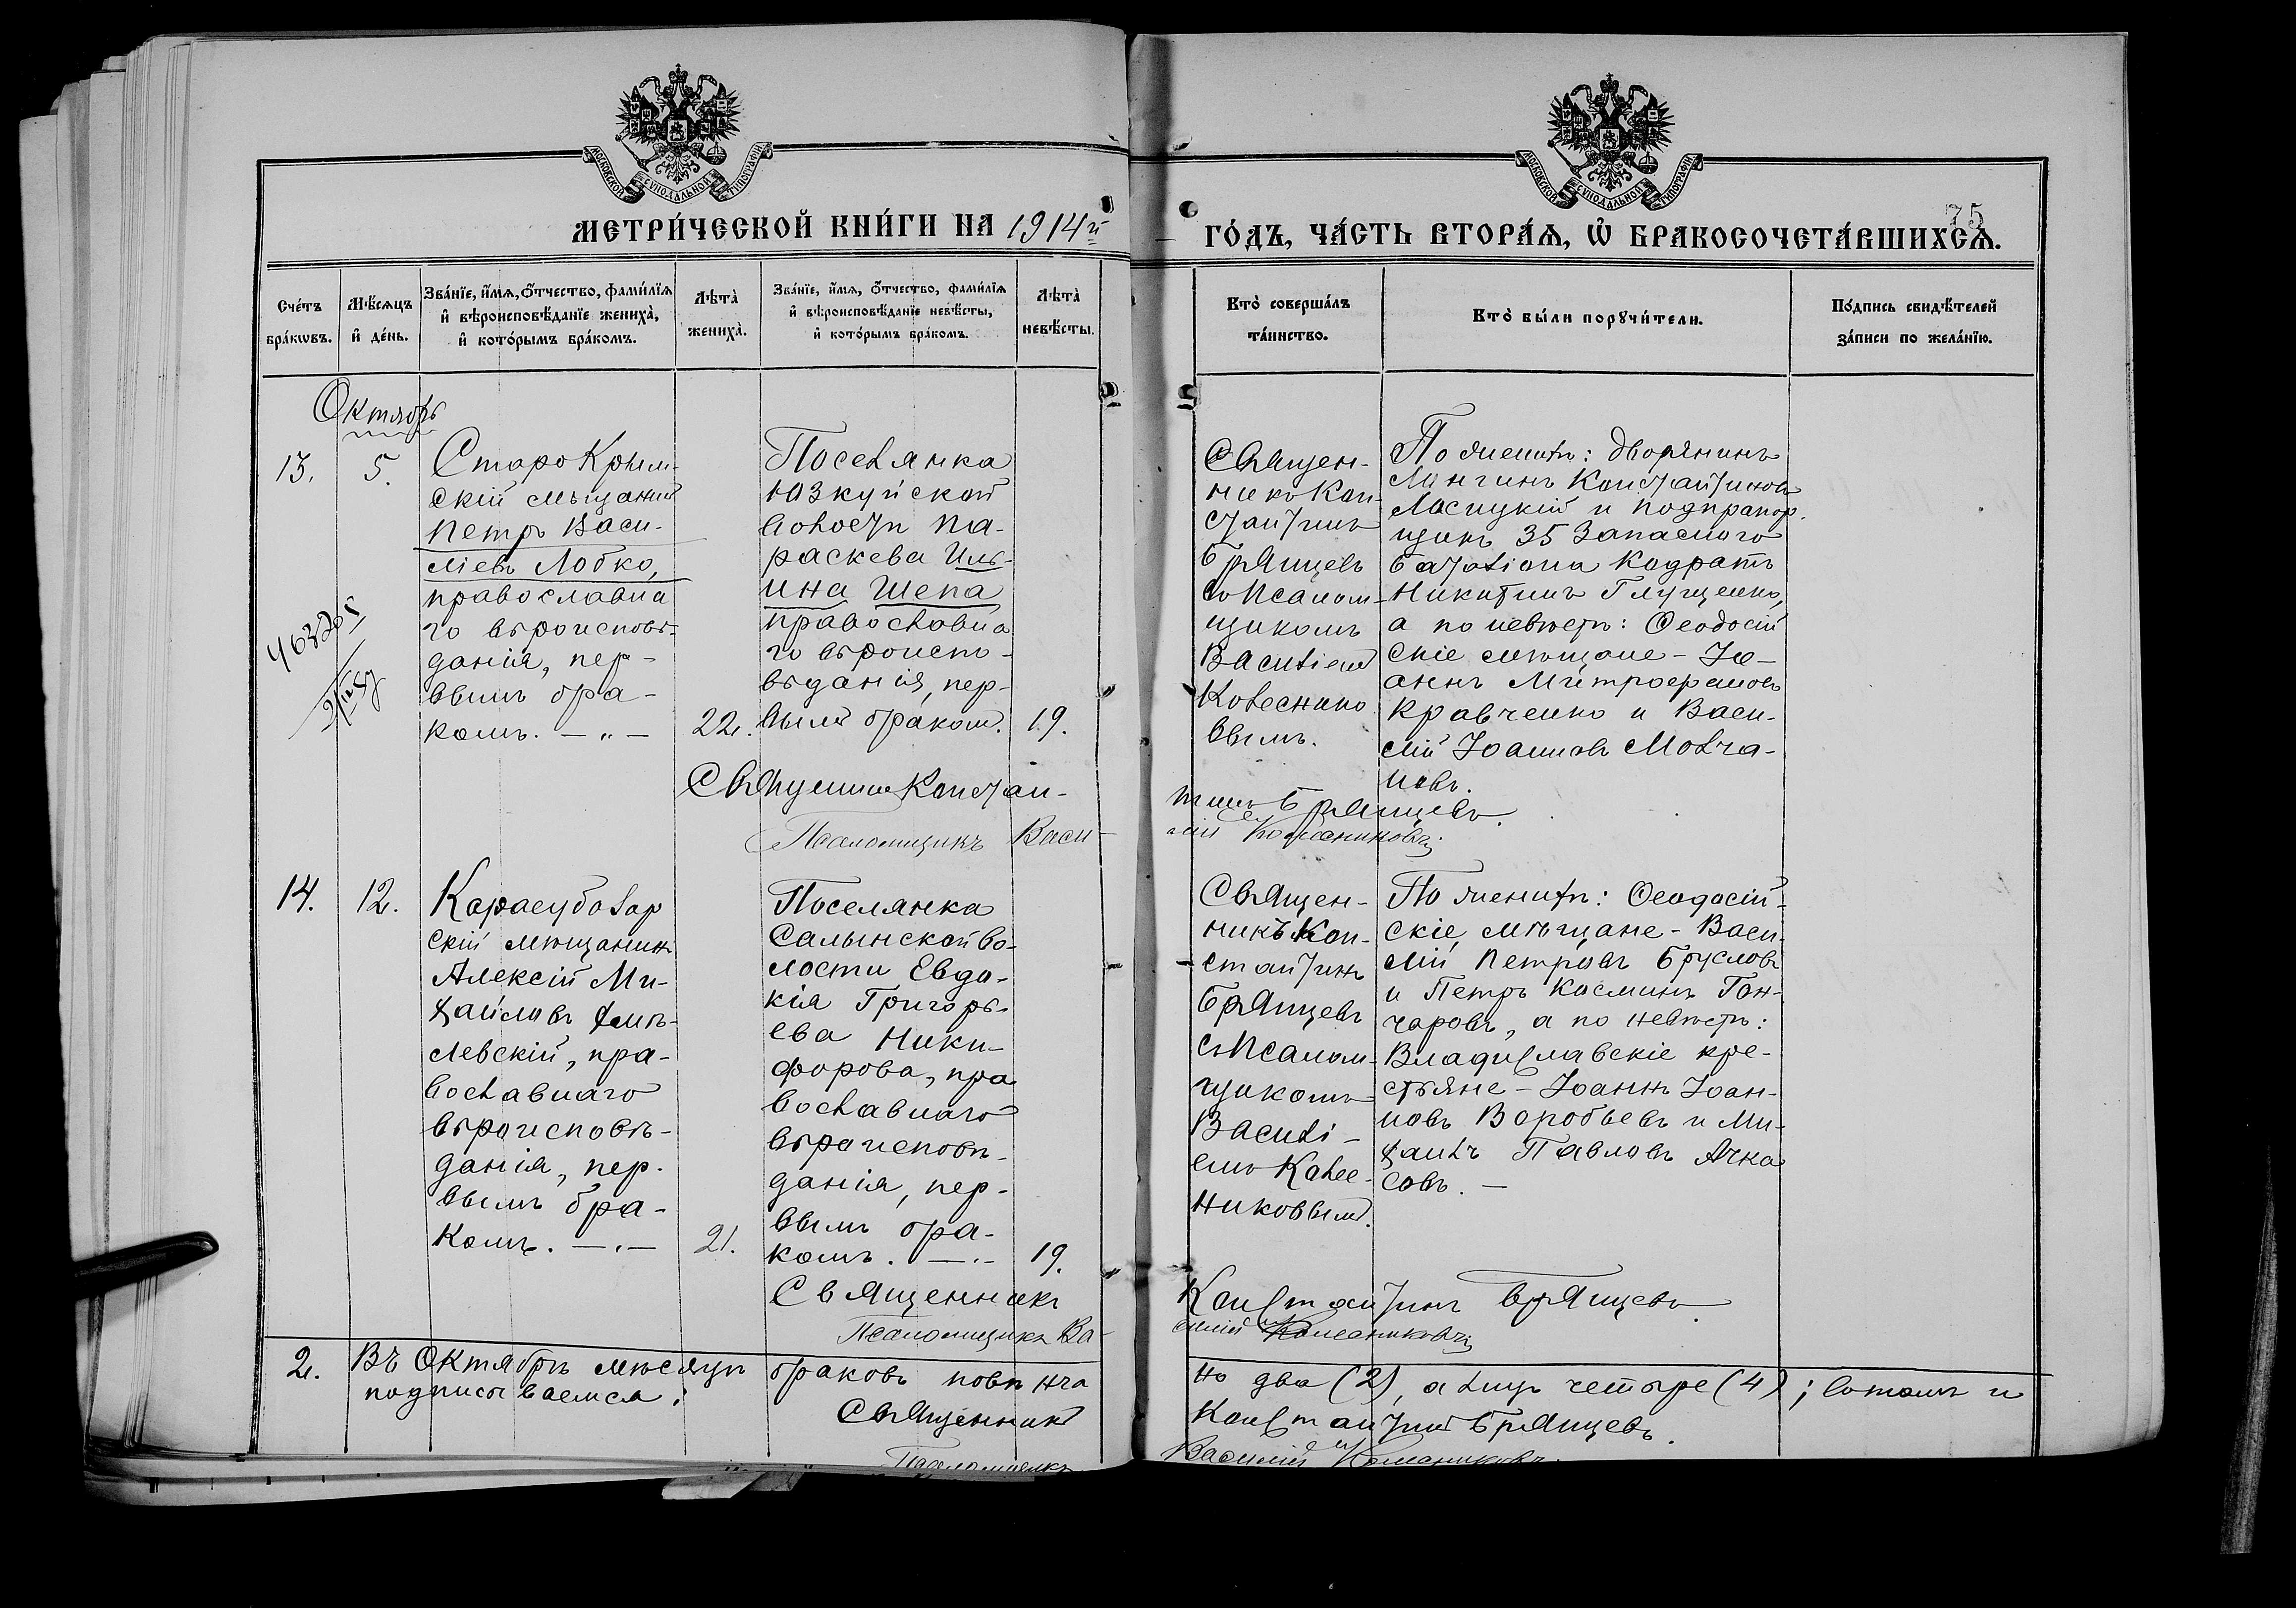 МОСКОВСКОЙ СУНОДАЛЬНОЙ ТИПОГРАФІИ
МОСКОВСКОЙ СУНОДАЛЬНОЙ ТИПОГРАФІИ
МЕТРИ́ЧЕСКОЙ КНИ́ГИ НА 1914й
ГО́ДЪ, ЧА́СТЬ ВТОРА́Ѧ, Ѽ БРАКОСОЧЕТА́ВШИХСѦ.
75
Сче́тъ
бра́кωвъ.
Мѣ́сѧцъ
и҆ де́нь.
Зва́нїе, и҆́мѧ, ѻ҆́тчество, фами́лїѧ
и҆ вѣроисповѣ́данїе жениха̀,
и҆ кото́рымъ бра́комъ.
Лѣта̀
жениха̀.
Зва́нїе, и҆́мѧ, ѻ҆́тчество, фами́лїѧ
и҆ вѣроисповѣ́данїе невѣ́сты,
и҆ кото́рымъ бра́комъ.
Лѣта̀
невѣ́сты.
Кто̀ соверша́лъ
та́инство.
Кто̀ бы́ли порꙋчи́тели.
По́дпись свидѣ́телей
за́писи по жела́нїю.
Октябрь
13.
5.
Старо Крым-
скій мѣщанинъ
Петръ Васи-
ліевъ Лобко,
православна
го вѣроисповѣ-
данія, пер-
вымъ бра-
комъ. — „ —
22.
Поселянка
Юзкуйской
волости Па-
раскева Иль-
ина Шепа
православна
го вѣроиспо-
вѣданія, пер-
вымъ бракомъ.
19.
Священ-
никъ Кон-
стантинъ
Брянцевъ
съ Псалом-
щикомъ
Василіемъ
Колеснико
вымъ.
По женихѣ: дворянинъ
Лонгинъ Константиновъ
Ласицкій и подпрапор-
щикъ 35 Запаснаго
баталіона Кодратъ
Никитинъ Глущенко,
а по невѣстѣ: Ѳеодосій
скіе мѣщане – Іо-
аннъ Митрофановъ
Кравченко и Васи-
лій Іоанновъ Молча-
новъ.
Священникъ Констан-
тинъ Брянцевъ.
Псаломщикъ Васи-
лій Колесниковъ
14.
12.
Карасубазар
скій мѣщанинъ
Алексій Ми-
хайловъ Хмѣ-
левскій, пра-
вославнаго
вѣроисповѣ-
данія, пер-
вымъ бра-
комъ. — „ —
21.
Поселянка
Салынской во-
лости Евдо-
кія Григорь-
ева Ники-
форова, пра
вославнаго
вѣроисповѣ-
данія, пер-
вымъ бра-
комъ. — „ —
19.
Священ-
никъ Кон-
стантинъ
Брянцевъ
съ Псалом-
щикомъ
Василі-
емъ Колес-
никовымъ.
По женихѣ: Ѳеодосій-
скіе мѣщане – Васи-
лій Петровъ Брусловъ
и Петръ Косминъ Гон-
чаровъ, а по невѣстѣ:
Владиславскіе кре-
стьяне – Іоаннъ Іоан-
новъ Воробьевъ и Ми-
хаилъ Павловъ Ачка
совъ. —
Священникъ
Константинъ Брянцевъ.
Псаломщикъ Ва-
силій Колесниковъ
2.
Въ Октябрѣ мѣсяцѣ браковъ повѣнча
но два (2), а лицъ четыре (4); въ томъ и
подписываемся:
Священникъ
Константинъ Брянцевъ.
Псаломщикъ
Василій Колесниковъ.